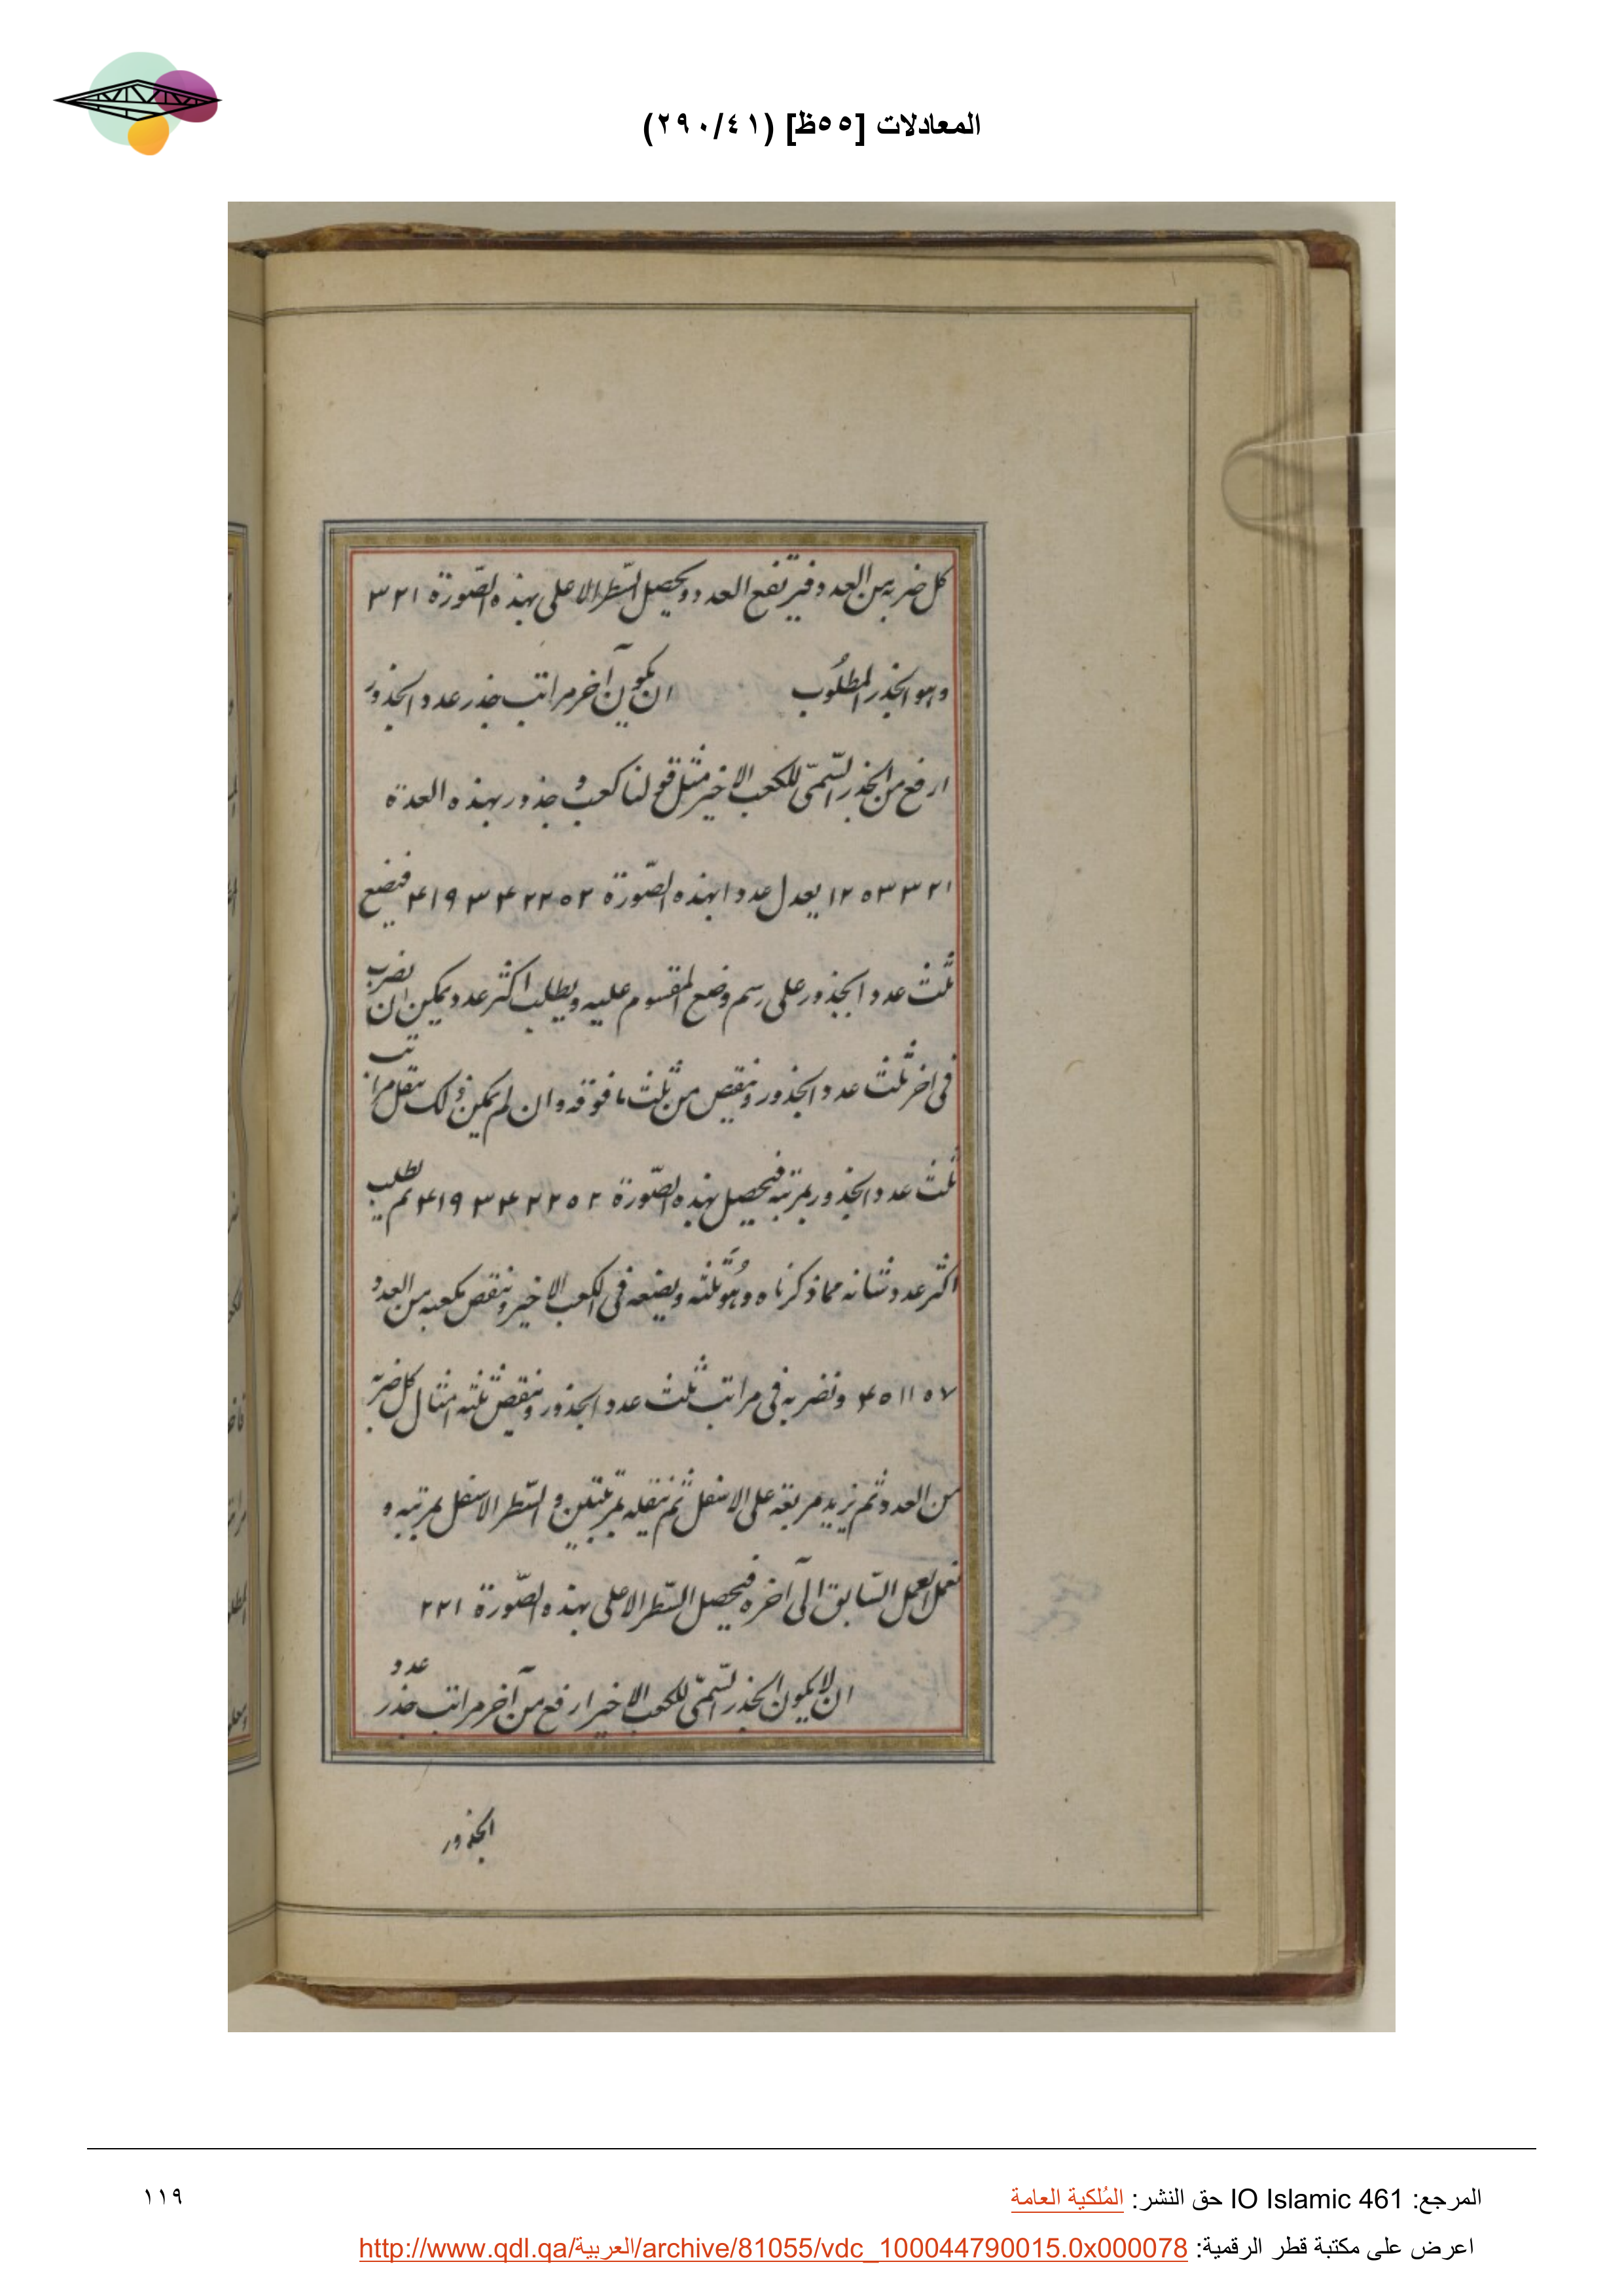 المعادلات [٥٥ظ] (٢٩٠/٤١)
كل ضربه من العدد فيرتفع العدد ويحصل السّطر الاعلى بهذه الصّورة ٣٢١
وهو الجذر المطلُوب ان يكون آخر مراتب جذر عدد الجذور
ارفع من الجذر السّمىّ للكعب الاخير مثل قولنا كعب و جذور بهذه العدة
١٢٥٣٣٢١ يعدل عددا بهذه الصّورة ۴١٩٣۴٢٢٥٢ فيضع
ثلث عدد الجذور على رسم وضع المقسوم عليه ويطلب اكثر عدد يمكن ان يضرب
فى اخر ثلث عدد الجذور وينقص من ثلث ما فوقه وان لم يمكن ذلك ينقل مراتب
ثلث عدد الجذور بمرتبة فيحصل بهذه الصّورة ۴١٩٣۴٢٢٥٢ ثم يطلب
اكثر عدد شانه مما ذكرناه وهُو ثلثه ويضعه فى الكعب الاخير وينقص مكعبه من العدد
۴٥١١٥٧ ونضربه فى مراتب ثلث عدد الجذور وينقص ثلثه امثال كل ضربه
من العدد ثم نزيد مربعه على الاسفل ثم ننقله بمرتبتين و السّطر الاسفل بمرتبه و
نعمل العمل السّابق الى آخره فيحصل السّطر الاعلى بهذه الصّورة ٢٢١
ان لا يكون الجذر السّمىّ للكعب الاخير ارفع من آخر مراتب جذر عدد
الجذور
المرجع: IO Islamic 461 حق النشر: المُلكية العامة
١١٩
اعرض على مكتبة قطر الرقمية: http://www.qdl.qa/العربية/archive/81055/vdc_100044790015.0x000078